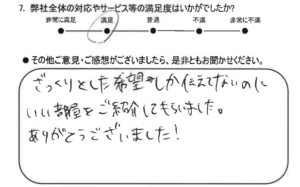 7. 弊社全体の対応やサービス等の満足度はいかがでしたか?
非常に満足 満足 普通 不満 非常に不満
● その他ご意見・ご感想がございましたら、是非ともお聞かせください。
ざっくりとした希望しか伝えてないのに
いい部屋をご紹介してもらいました。
ありがとうございました!